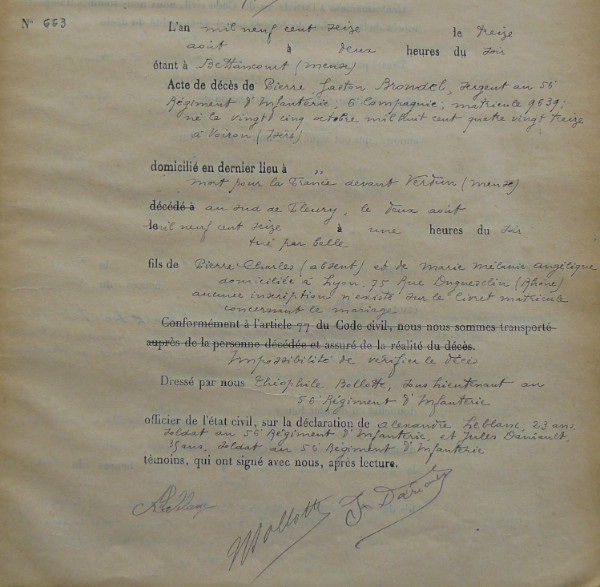 N° 663
L'an mil neuf cent seize le treize
août à deux heures du soir
étant à Bettancourt (Meuse)
Acte de décès de Pierre Gaston Brondel, sergent au 56e
Régiment d'Infanterie; 6e Compagnie, matricule 9639;
né le vingt cinq octobre mil huit cent quatre vingt treize
à Voiron (Isère)
domicilié en dernier lieu à "
mort pour la France devant Verdun (Meuse)
décédé à au sud de Fleury, le deux août
mil neuf cent seize à une heures du soir
tué par balle
fils de Pierre Charles (absent) et de Marie Mélanie Angélique
domiciliée à Lyon, 75 Rue Duguesclin (Rhône)
aucune inscription n'existe sur le livret matricule
concernant le mariage.
Conformément à l'article 77 du Code civil, nous nous sommes transporté
auprès de la personne décédée et assuré de la réalité du décès.
Impossibilité de vérifier le décès
Dressé par nous Théophile Bollotte, sous lieutenant au
56e Régiment d'Infanterie
officier de l'état civil, sur la déclaration de Alexandre Leblanc, 23 ans,
soldat au 56e Régiment d'Infanterie, et Jules Daniault,
ans, soldat au 56e Régiment d'Infanterie
témoins, qui ont signé avec nous, après lecture.